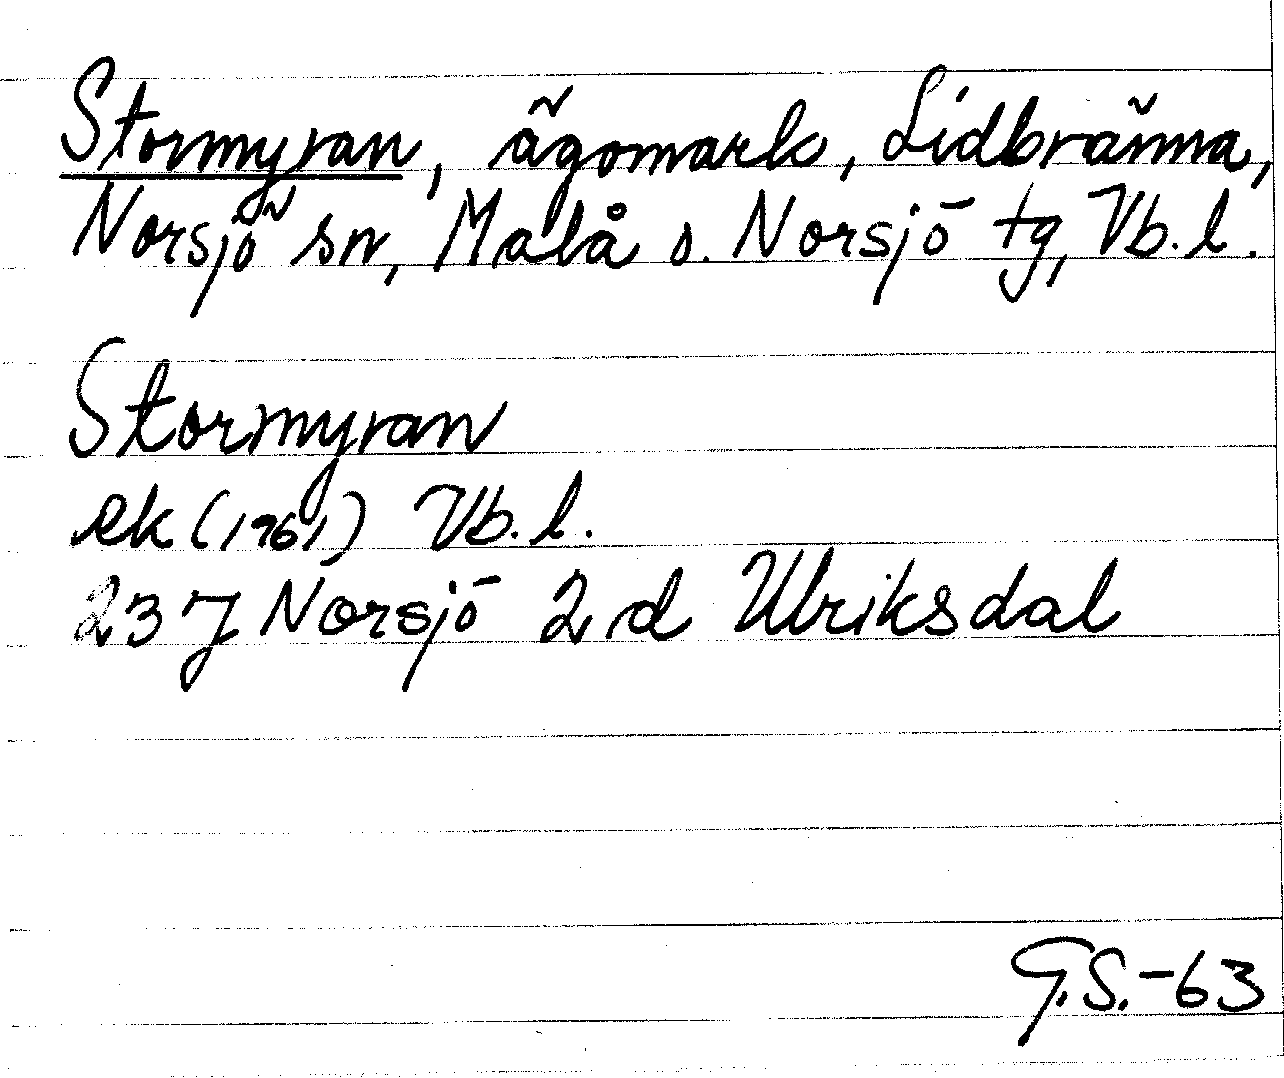 Stormyran, ägomark, Lidbränna,
Norsjö sn, Malå o. Norsjö tg, Vb. l.
Stormyran
ek (1961) Vb. l.
23 J Norsjö 2 d Ulriksdal
G.S.-63